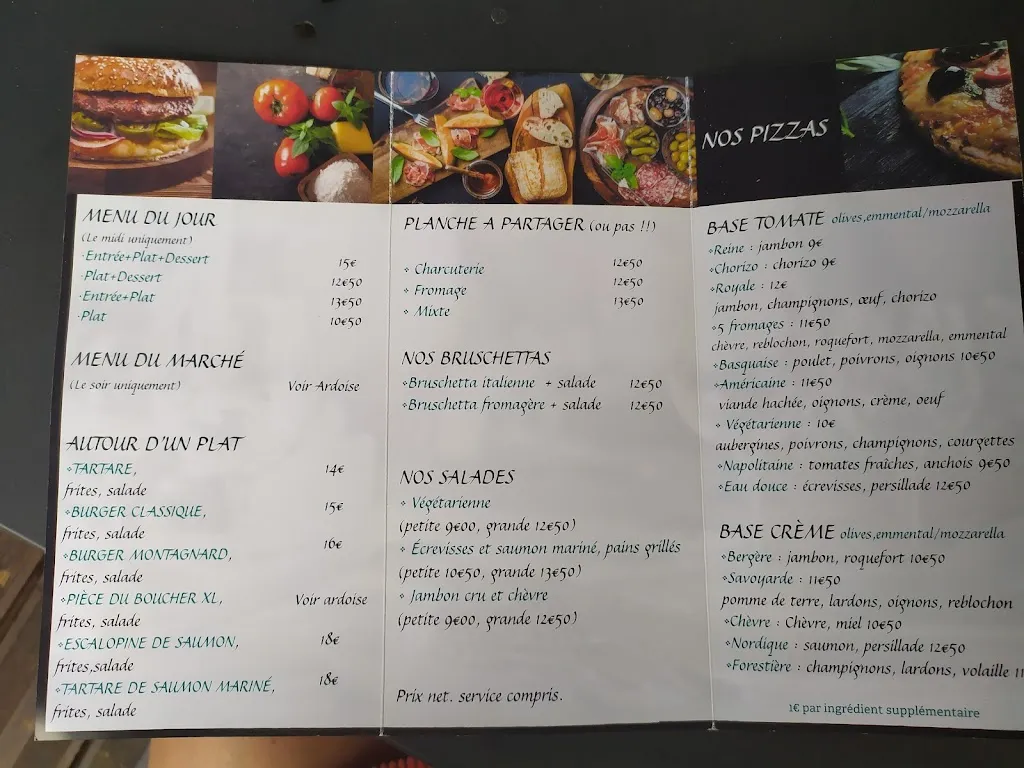 MENU DU JOUR
(Le midi uniquement)
·Entrée+Plat+Dessert 15€
·Plat+Dessert 12€50
·Entrée+Plat 13€50
·Plat 10€50
MENU DU MARCHÉ
(Le soir uniquement) Voir Ardoise
AUTOUR D'UN PLAT
❖TARTARE, 14€
frites, salade
❖BURGER CLASSIQUE, 15€
frites, salade
❖BURGER MONTAGNARD, 16€
frites, salade
❖PIÈCE DU BOUCHER XL, Voir ardoise
frites, salade
❖ESCALOPINE DE SAUMON, 18€
frites,salade
❖TARTARE DE SAUMON MARINÉ, 18€
frites, salade
PLANCHE A PARTAGER (ou pas !!)
❖ Charcuterie 12€50
❖ Fromage 12€50
❖ Mixte 13€50
NOS BRUSCHETTAS
❖Bruschetta italienne + salade 12€50
❖Bruschetta fromagère + salade 12€50
NOS SALADES
❖ Végétarienne
(petite 9€00, grande 12€50)
❖ Écrevisses et saumon mariné, pains grillés
(petite 10€50, grande 13€50)
❖ Jambon cru et chèvre
(petite 9€00, grande 12€50)
Prix net. service compris.
NOS PIZZAS
BASE TOMATE olives,emmental/mozzarella
❖Reine : jambon 9€
❖Chorizo : chorizo 9€
❖Royale : 12€
jambon, champignons, œuf, chorizo
❖5 fromages : 11€50
chèvre, reblochon, roquefort, mozzarella, emmental
❖Basquaise : poulet, poivrons, oignons 10€50
❖Américaine : 11€50
viande hachée, oignons, crème, oeuf
❖ Végétarienne : 10€
aubergines, poivrons, champignons, courgettes
❖Napolitaine : tomates fraîches, anchois 9€50
❖Eau douce : écrevisses, persillade 12€50
BASE CRÈME olives,emmental/mozzarella
❖Bergère : jambon, roquefort 10€50
❖Savoyarde : 11€50
pomme de terre, lardons, oignons, reblochon
❖Chèvre : Chèvre, miel 10€50
❖Nordique : saumon, persillade 12€50
❖Forestière : champignons, lardons, volaille 11
1€ par ingrédient supplémentaire